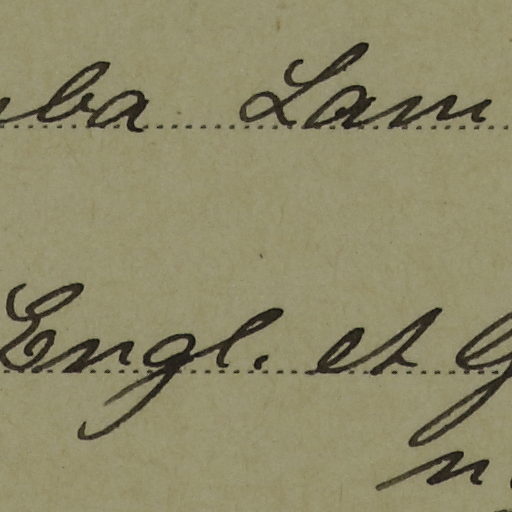 ba Lam
Engl. et G
n.